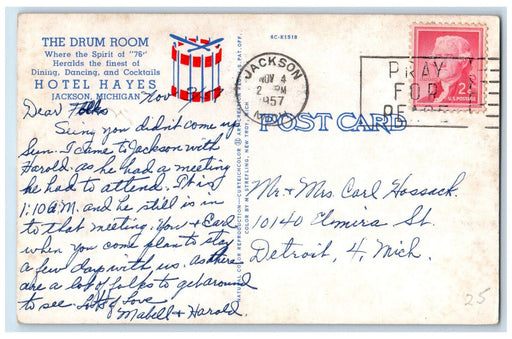 THE DRUM ROOM
Where the Spirit of "76"
Heralds the finest of
Dining, Dancing, and Cocktails
HOTEL HAYES
JACKSON, MICHIGAN
6C-K1518
JACKSON
NOV 4
2 PM
1957
MICH
PRAY
FOR
2¢
U.S. POSTAGE
POST CARD
Nov
Dear Folks
Seeing you didn't come up
Sun. I came to Jackson with
Harold. as he had a meeting
he had to attend. It is
1:10 A.M. and he still is in
to that meeting. You & Carl
when you come plan to stay
a few day with us. as there
are a lot of folks to get around
to see. Lots of Love
Mabell & Harold.
Mr. & Mrs. Carl Hossack.
10140 Elmira St.
Detroit, 4, Mich.
25